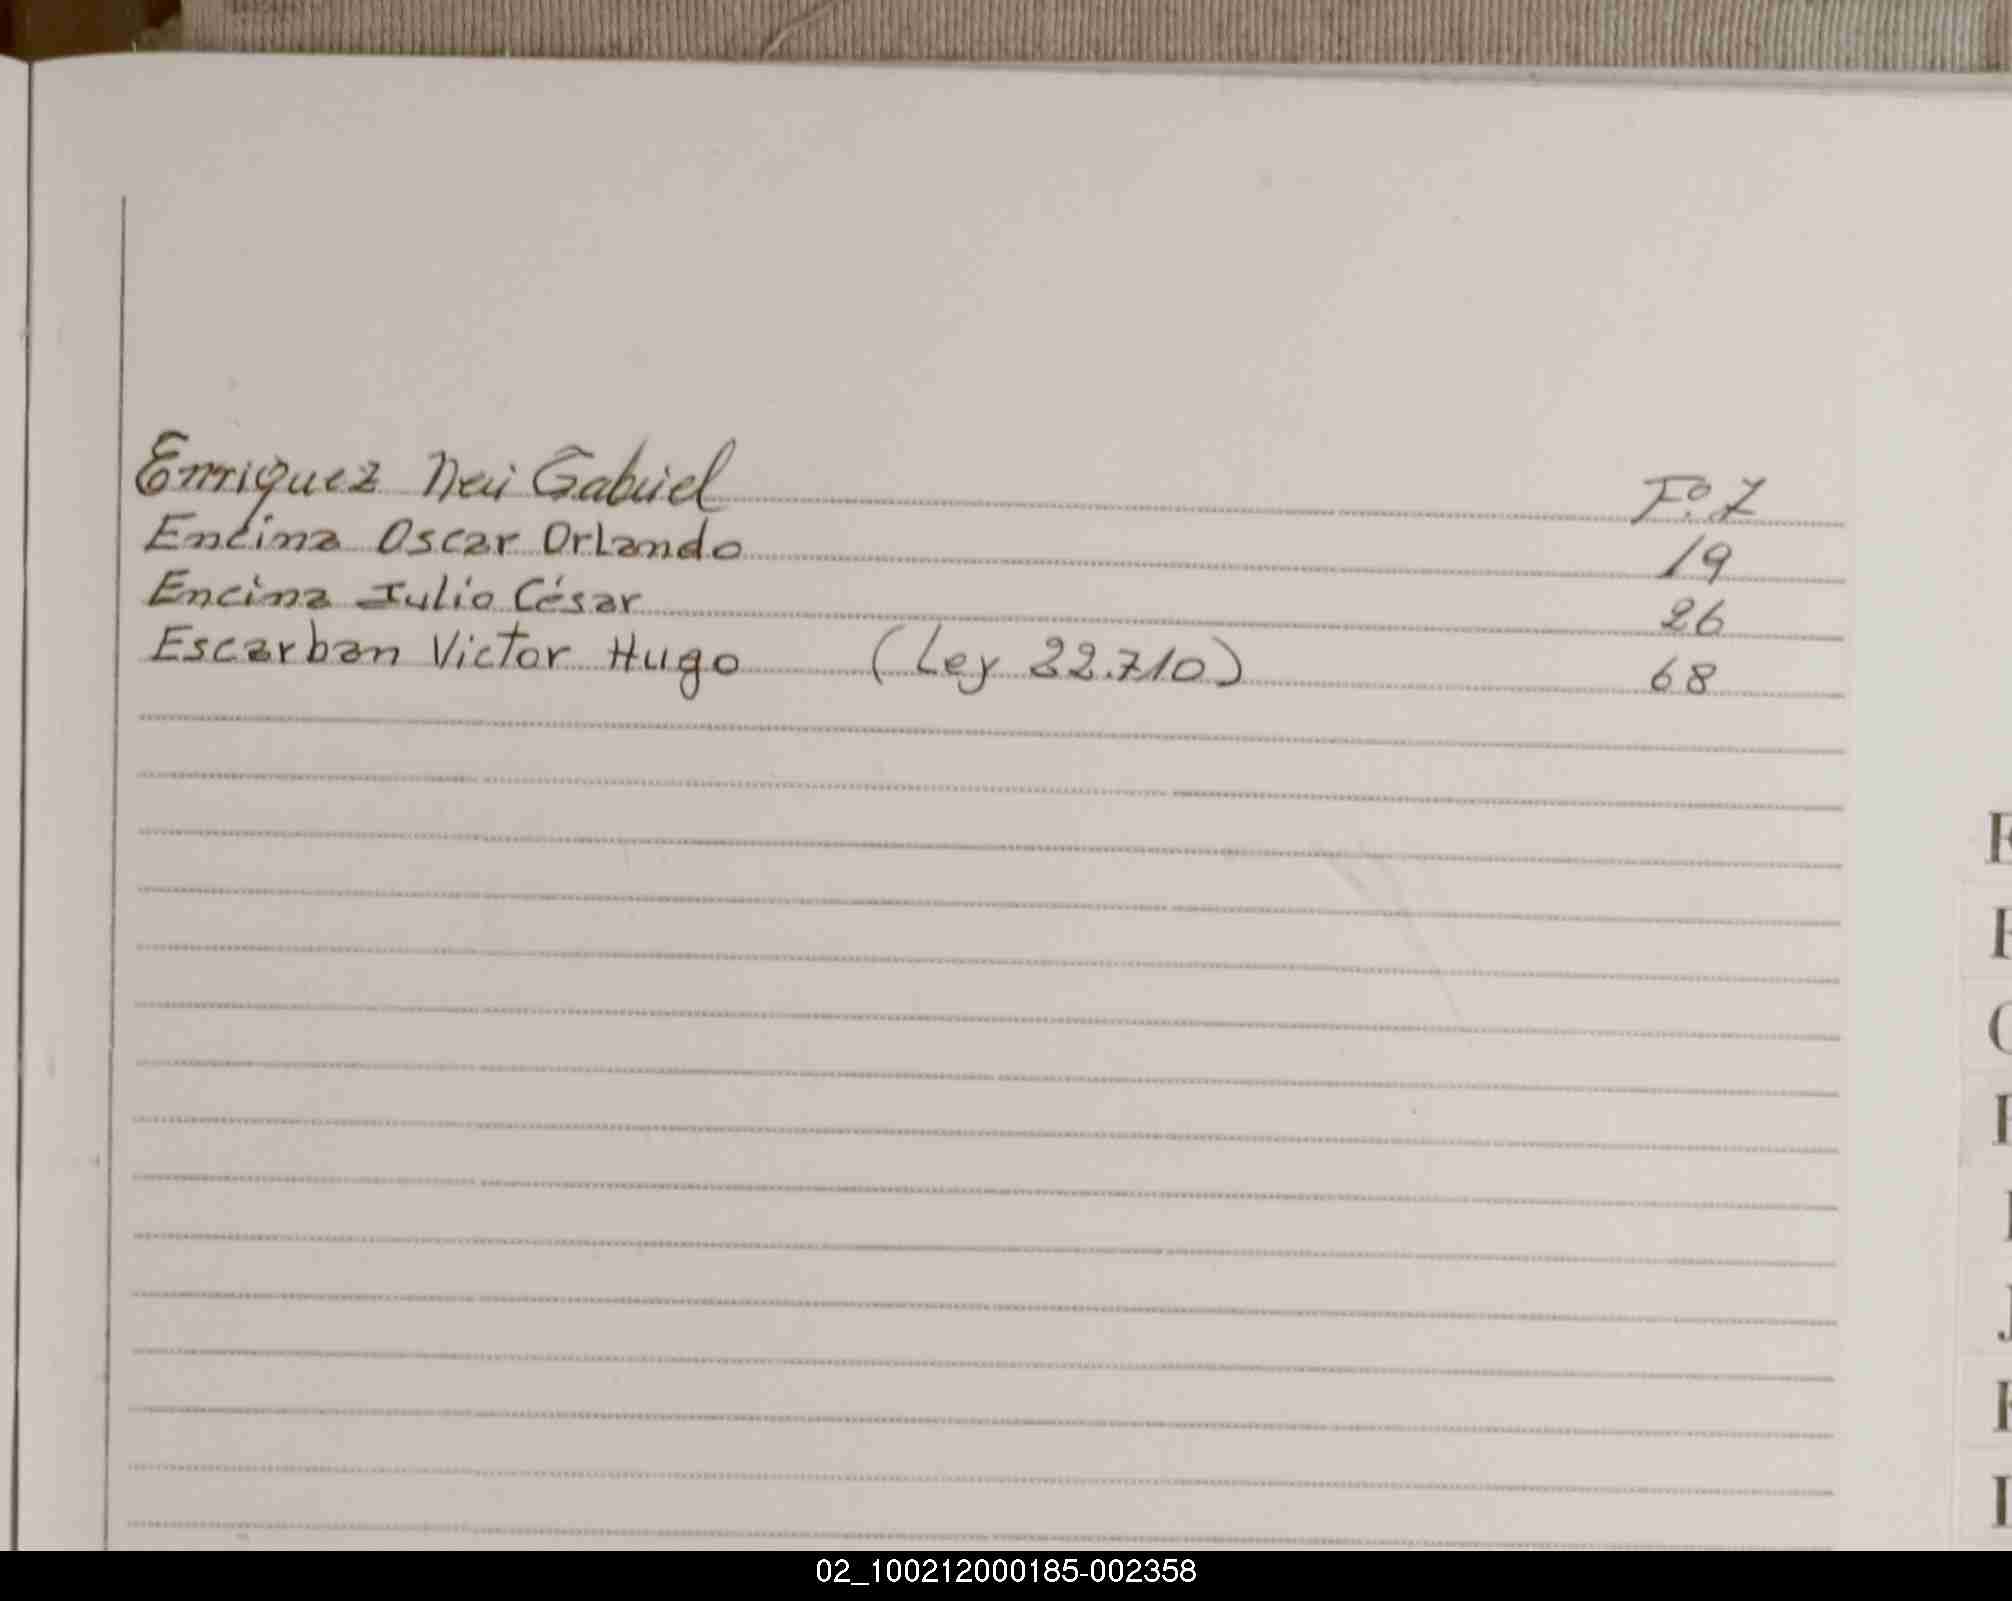 Enriquez Neri Gabriel Fº. 7
Encina Oscar Orlando 19
Encina Julio César 26
Escarban Victor Hugo (Ley 22.710) 68
02_100212000185-002358